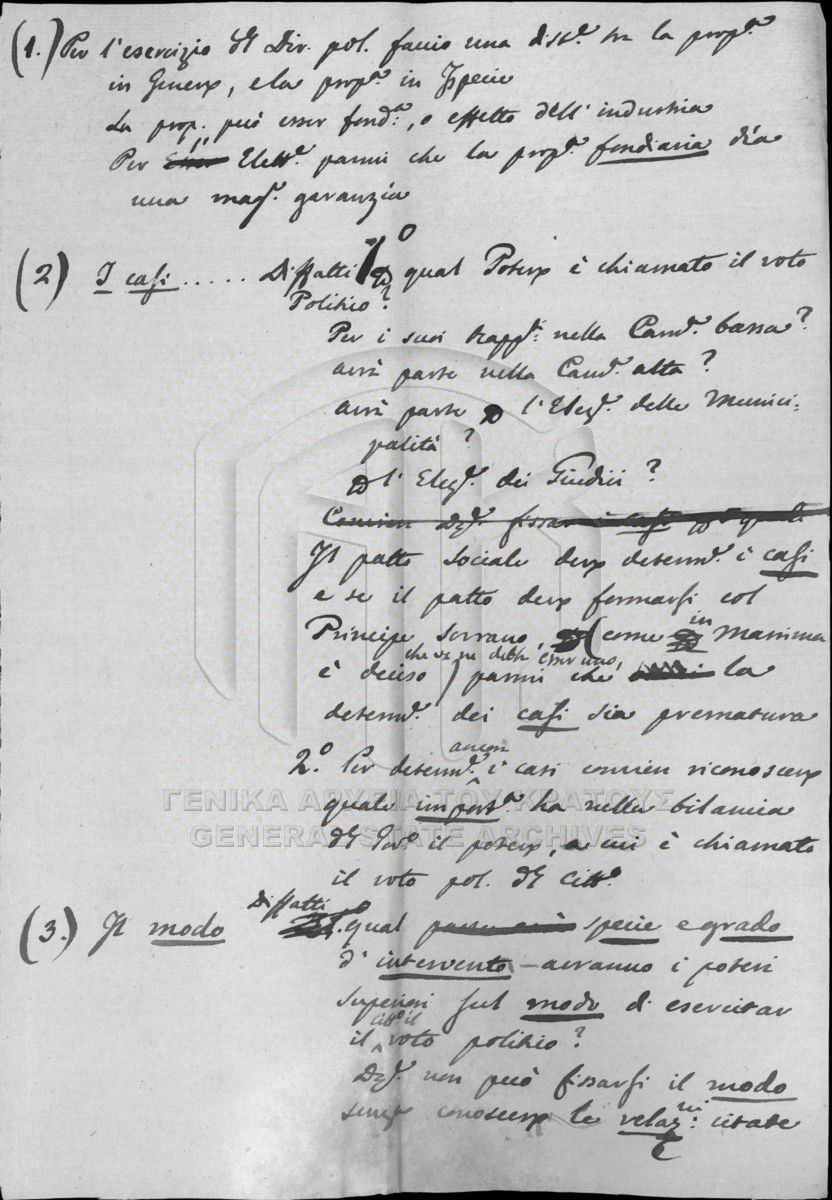 (1.) Per l'esercizio del Dir. pol. faccio una dist.e tra la prop.a
in Genere, e la prop.a in Ispecie
La prop. può esser fond.a, o effetto dell' industria
Per Elett.e parmi che la prop.a fondiaria dia
una mag.e garanzia
(2) I casi ..... Diffatti 1.o a qual Potere è chiamato il voto
Politico?
Per i suoi rapp.ti nella Cam.a bassa?
avrà parte nella Cam.a alta?
avrà parte a l'Elez.e delle Munici:
palità?
a l'Elez.e dei Giudici?
Convien fissar i casi
Il patto sociale dere determ.e i casi
e se il patto dere formarsi col
Principe Sovrano, (come in Massima
che ve ne debba esser uno,
è deciso) parmi che la
determ.e dei casi sia prematura
2.o Per determ.e ancor i casi convien riconoscere
quale import.a ha nella bilancia
del Gov.o il potere, a cui è chiamato
il voto pol. del Citt.o
(3.) Il modo Diffatti qual specie e grado
d'intervento avranno i poteri
superiori sul modo di esercitar
citt.o il
il voto politico?
non può fissarsi il modo
senza conoscere le relaz.ni citate
ΓΕΝΙΚΑ ΑΡΧΕΙΑ ΤΟΥ ΚΡΑΤΟΥΣ
GENERAL STATE ARCHIVES